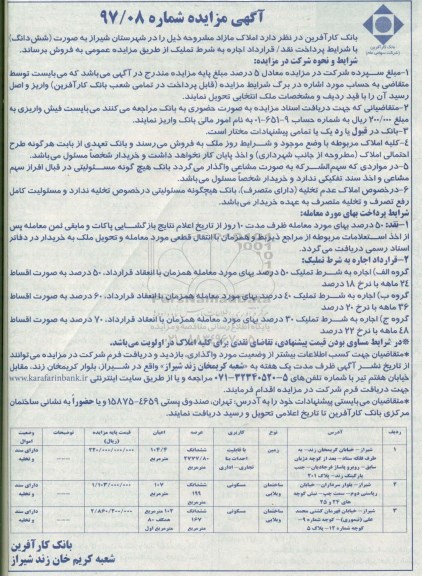 آگهی مزایده شماره ۹۷/۰۸
بانک کارآفرین در نظر دارد املاک مازاد مشروحه ذیل را در شهرستان شیراز به صورت (شش‌دانگ)
با شرایط پرداخت نقد / قرارداد اجاره به شرط تملیک از طریق مزایده عمومی به فروش برساند.
شرایط و نحوه شرکت در مزایده:
۱-مبلغ سپرده شرکت در مزایده معادل ۵ درصد مبلغ پایه مزایده مندرج در آگهی می‌باشد که می‌بایست توسط
متقاضی به حساب مورد اشاره در برگ شرایط مزایده (قابل پرداخت در تمامی شعب بانک کارآفرین) واریز و اصل
رسید آن را با قید ردیف و مشخصات ملک انتخابی تحویل نمایند.
۲-متقاضیانی که جهت دریافت اسناد مزایده به صورت حضوری به بانک مراجعه می کنند می‌بایست فیش واریزی به
مبلغ ۲۰۰/۰۰۰ ریال به شماره حساب ۹-۶۵۱-۰۱ به نام امور مالی بانک واریز نمایند.
۳-بانک در قبول یا رد یک یا تمامی پیشنهادات مختار است.
۴-کلیه املاک مربوطه با وضع موجود و شرایط روز ملک به فروش می‌رسند و بانک تعهدی از بابت هرگونه طرح
احتمالی املاک (مطروحه از جانب شهرداری) و اخذ پایان کار نخواهد داشت و خریدار شخصاً مسئول می‌باشد.
۵-در مواردی که سهم‌الشرکه به صورت مشاعی واگذار می‌گردد بانک هیچ گونه مسئولیتی در قبال افراز سهم
مشاعی و اخذ سند تفکیکی ندارد و خریدار شخصاً مسئول می‌باشد.
۶-درخصوص املاک عدم تخلیه (دارای متصرف)، بانک هیچگونه مسئولیتی درخصوص تخلیه ندارد و مسئولیت کامل
رفع تصرف و تخلیه متصرف به عهده خریدار می‌باشد.
شرایط پرداخت بهای مورد معامله:
۱-نقد: ۵۰ درصد بهای مورد معامله ظرف مدت ۱۰ روز از تاریخ اعلام نتایج بازگشایی پاکات و مابقی ثمن معامله پس
از اخذ استعلامات مربوطه از مراجع ذیربط و همزمان با انتقال قطعی مورد معامله و تحویل ملک به خریدار در دفاتر
اسناد رسمی دریافت می‌گردد.
۲-قرارداد اجاره به شرط تملیک:
گروه الف) اجاره به شرط تملیک ۵۰ درصد بهای مورد معامله همزمان با انعقاد قرارداد، ۵۰ درصد به صورت اقساط
۲۴ ماهه با نرخ ۱۸ درصد
گروه ب) اجاره به شرط تملیک ۴۰ درصد بهای مورد معامله همزمان با انعقاد قرارداد، ۶۰ درصد به صورت اقساط
۳۶ ماهه با نرخ ۲۰ درصد
گروه ج) اجاره به شرط تملیک ۳۰ درصد بهای مورد معامله همزمان با انعقاد قرارداد، ۷۰ درصد به صورت اقساط
۴۸ ماهه با نرخ ۲۲ درصد
*در شرایط مساوی بودن قیمت پیشنهادی، تقاضای نقدی برای کلیه املاک در اولویت می‌باشد.
*متقاضیان جهت کسب اطلاعات بیشتر از وضعیت مورد واگذاری، بازدید و دریافت فرم شرکت در مزایده می‌توانند
از تاریخ نشر آگهی ظرف مدت یک هفته به «شعبه کریمخان زند شیراز» واقع در شیراز، بلوار کریمخان زند، مقابل
خیابان هفتم تیر یا شماره تلفن‌های ۵-۳۲۳۴۰۵۲۰-۰۷۱ مراجعه و یا از طریق سایت اینترنتی www.karafarinbank.ir
جهت دریافت فرم شرکت در مزایده اقدام فرمایند.
*متقاضیان می‌بایستی پیشنهادات خود را به آدرس: تهران، صندوق پستی ۴۶۵۹-۱۵۸۷۵ و یا حضوراً به نشانی ساختمان
مرکزی بانک کارآفرین تا تاریخ اعلامی تحویل و رسید دریافت نمایند.
ردیف آدرس نوع کاربری عرصه اعیان قیمت پایه مزایده (ریال) توضیحات وضعیت اموال
۱ شیراز - خیابان کریمخان زند - به
زمین با قابلیت احداث بنا تجاری - اداری ششدانگ ۲۷۷۷/۸۰ مترمربع
دارای سند و تخلیه
۲ شیراز - بلوار سرداران - خیابان
ویلایی مسکونی ششدانگ ۱۹۹ مترمربع ۱۰۷ مترمربع
دارای سند و تخلیه
۳ شیراز - خیابان قهرمان کشتی محمد
ساختمان ویلایی مسکونی ششدانگ ۱۶۷ مترمربع ۱۰۲ مترمربع همکف ۸۰ مترمربع اول
دارای سند و تخلیه
بانک کارآفرین
شعبه کریم خان زند شیراز